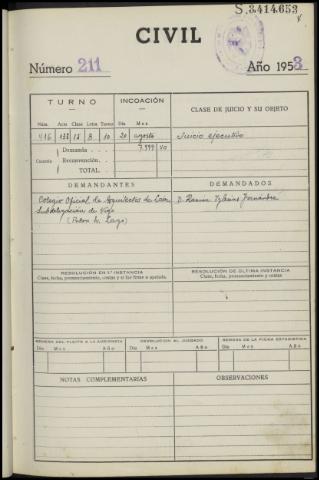 S,3414.653
CIVIL
Número 211 Año 1953
TURNO
INCOACIÓN
CLASE DE JUICIO Y SU OBJETO
Núm. Año Clase Letra Turno Día Mes
B 10 20 agosto
Juicio ejecutivo
Cuantía
Demanda
Reconvención
TOTAL
DEMANDANTES
DEMANDADOS
Colegio Oficial de Arquitectos de León
Subdelegación de Vigo
D. Ramón Iglesias Fernández
RESOLUCIÓN EN 1.ª INSTANCIA
Clase, fecha, pronunciamiento, costas y si fué firme o apelada.
RESOLUCIÓN DE ÚLTIMA INSTANCIA
Clase, fecha, pronunciamiento y costas
REMESA DEL PLEITO A LA AUDIENCIA
DEVOLUCIÓN AL JUZGADO
REMESA DE LA FICHA ESTADÍSTICA
Día Mes Año
Día Mes Año
Día Mes Año
NOTAS COMPLEMENTARIAS
OBSERVACIONES